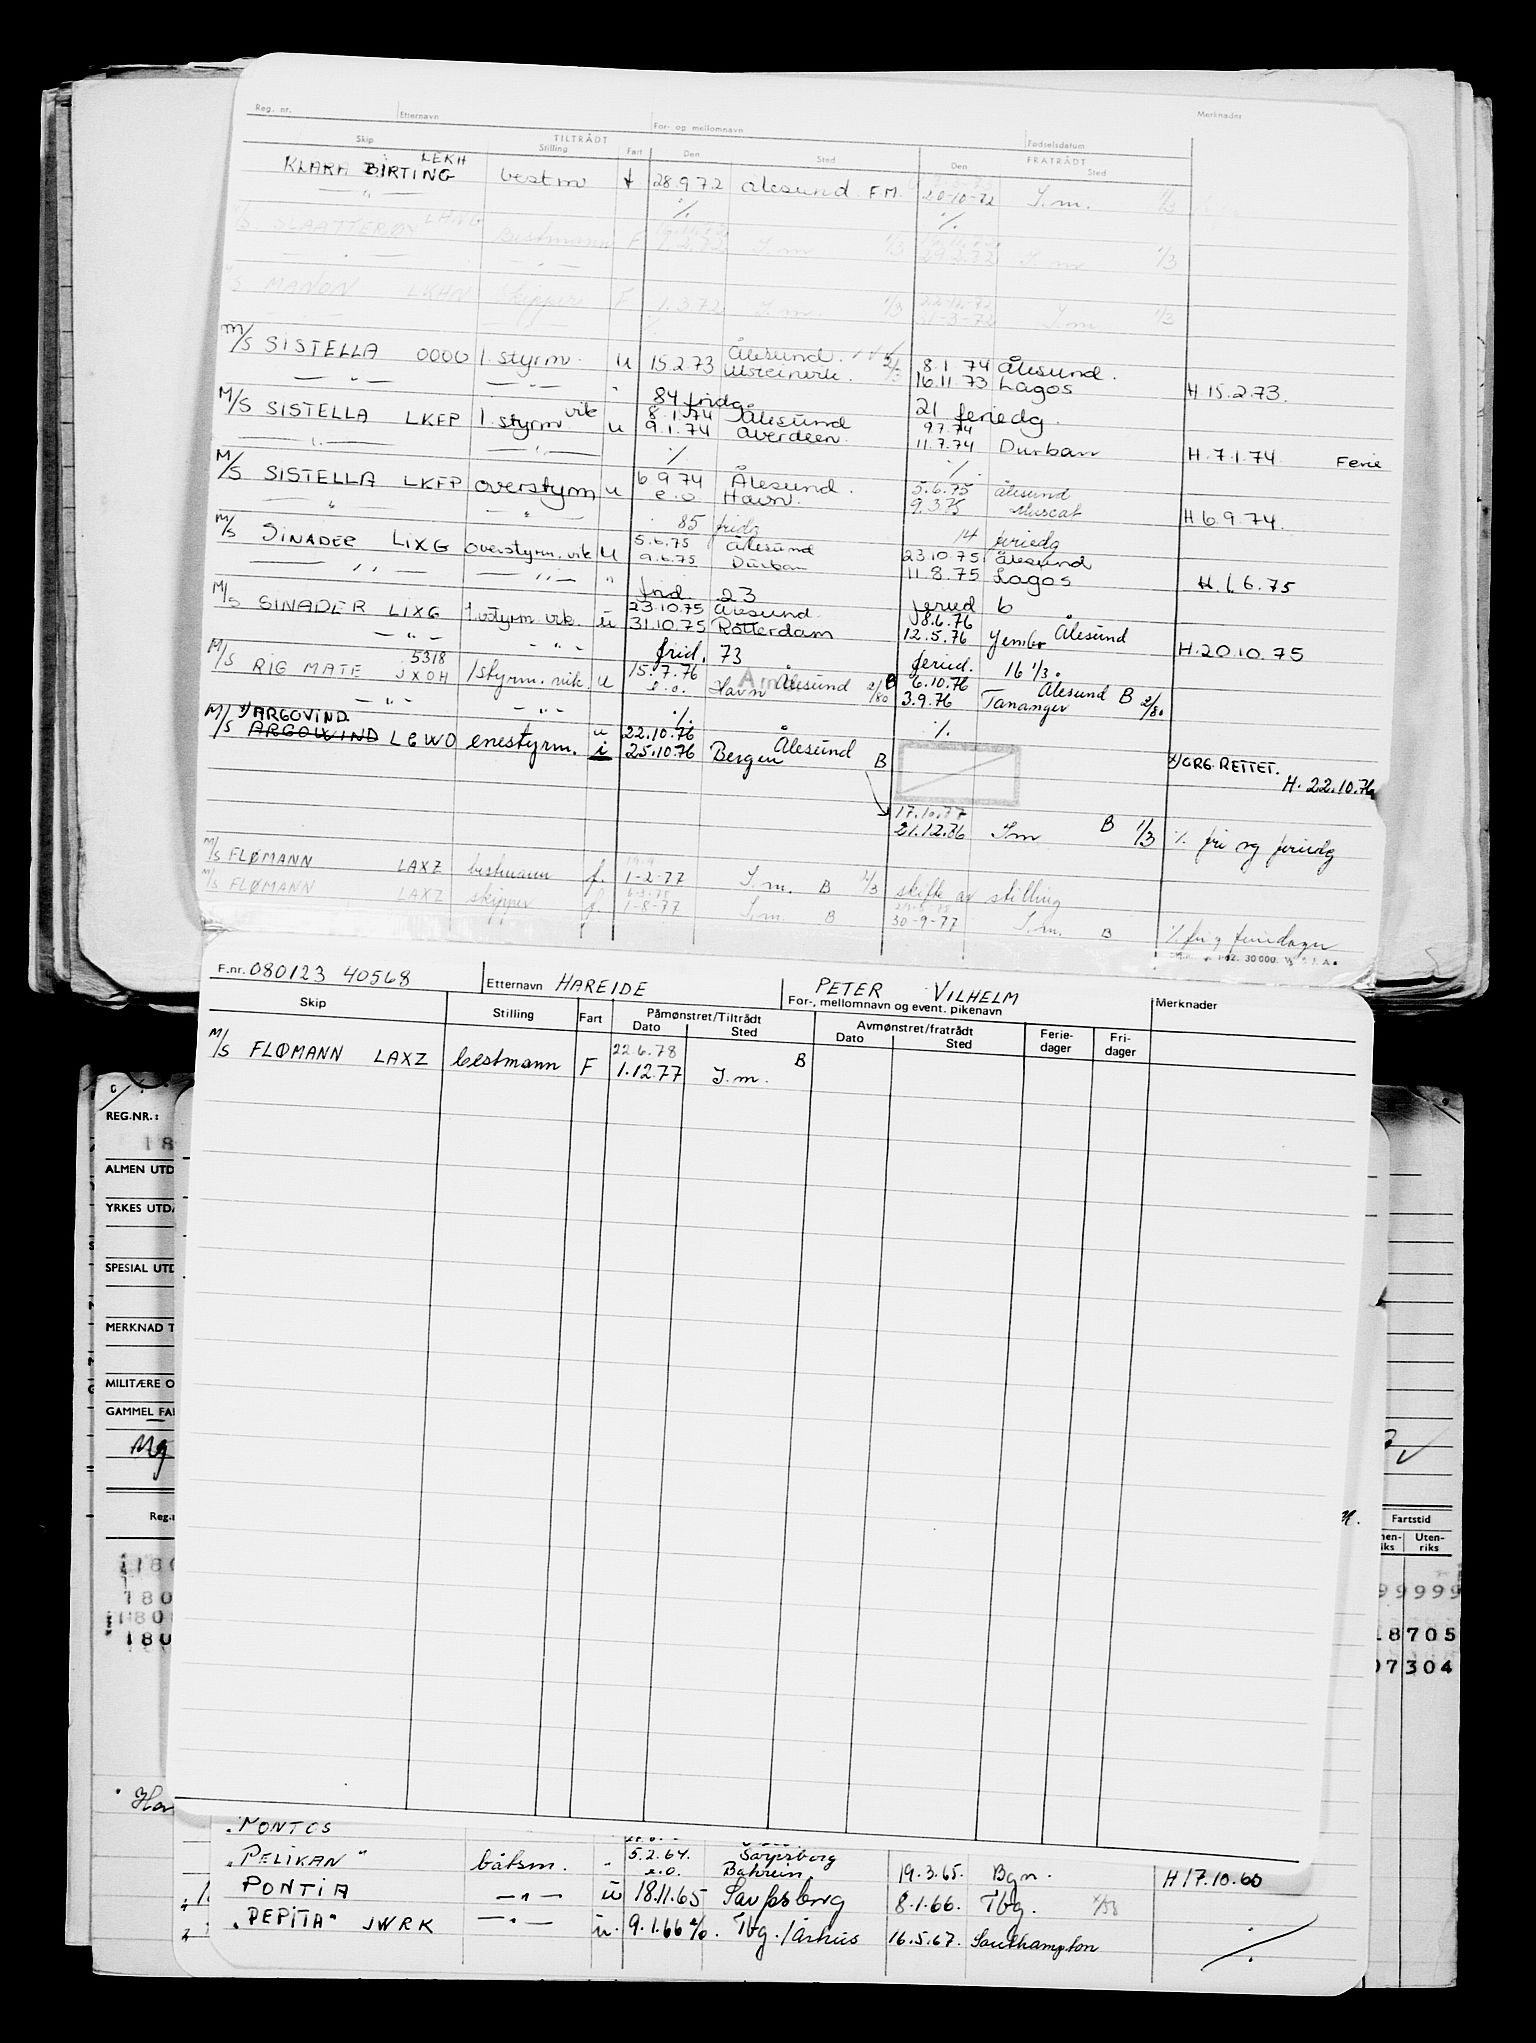 Reg. nr. Etternavn For- og mellomnavn Merknader
Fødselsdatum
TILTRÅDT FRATRÅDT
Skip Stilling Fart Den Sted Den Sted
LEKH
KLARA BIRTING bestm f 28.9.72 Ålesund F.M. 20-10-72 I.m. 1/3
— " — % %
M/S SLAATTERØY LHNG Bestmann F 1.2.72 I.m 1/3 29.2.72 I.m 1/3
M/S MANON LKHN Skipper F 1.3.72 I.m. 1/3 22-12-72 I.m 1/3
21-3-72
M/S SISTELLA 0000 1. styrm. u 15.2.73 Ålesund. 2/3 8.1 74 Ålesund.
— " — — " — " 16.11 73 Lagos H 15.2.73.
84 fridg. 21 feriedg.
M/S SISTELLA LKFP 1. styrm vik u 8.1.74 Ålesund 9.7.74
— " — — " — 9.1.74 Averdeen. 11.7.74 Durban H.7.1.74 Ferie
% %.
M/S SISTELLA LKFP overstyrm u 6 9 74 Ålesund. 5.6.75 Ålesund
— " — — " — e.o. Havn. 9.3 75 Muscat H 6.9.74.
85 fridg 14 feriedg
M/S SINADER LIXG overstyrm. vik u 5.6.75 Ålesund 23.10.75 Ålesund
— " — — " — " 9.6.75 Durban 11.8.75 Lagos H. 1. 6.75
frid. 23 feried 6
M/S SINADER LIXG 1. styrm. vik. u 23.10.75 Ålesund. 18.6.76 Ålesund
— " — — " — 31.10.75 Rotterdam 12.5.76 Yembo H.20.10.75
frid. 73 feried. 16 1/3.
M/S RIG MATE 5318 JXOH 1 styrm. vik. u 15.7.76 Ålesund 2/80 B 6.10.76 Ålesund B 2/80
— " — — " — e.o. Havn 3.9.76 Tananger
x/ARGOVIND %. %.
M/S ARGOWIND LGWO enestyrm. u 22.10.76 Ålesund
i 25.10.76 Bergen B x) GRG. RETTET.
H. 22.10.76
17.10.77
21.12.76 I.m B 1/3 % fri og feriedg
M/S FLØMANN LAXZ bestmann f. 1-2-77 I.m. B 2/3 skifte av stilling
M/S FLØMANN LAXZ skipper f. 1-8-77 I.m. B 30-9-77 I.m. B % fri og feriedager
F.nr. 080123 40568 Etternavn HAREIDE PETER VILHELM
For-, mellomnavn og event. pikenavn Merknader
Skip Stilling Fart Påmønstret/Tiltrådt Avmønstret/fratrådt Ferie- Fri-
Dato Sted Dato Sted dager dager
M/S FLØMANN LAXZ bestmann F 22.6.78 B
1.12.77 I.m.
REG.NR.:
18
ALMEN UTD
YRKES UTD
SPESIAL UTD
MERKNAD T
MILITÆRE O
GAMMEL FA
Reg.
Fartstid
Uten-
riks
180
180
180
180
99999
18705
07304
"PONTOS
"PELIKAN" båtsm. " 5.2.64. Sarpsborg
e.o. Bahrein. 19.3.65. Bgn. H 17.10.60
PONTIA — " — u 18.11.65 Sarpsborg 8.1.66. Tbg.
"PEPITA" JWRK — " — u. 9.1.66 Tbg./Århus 16.5.67. Southampton